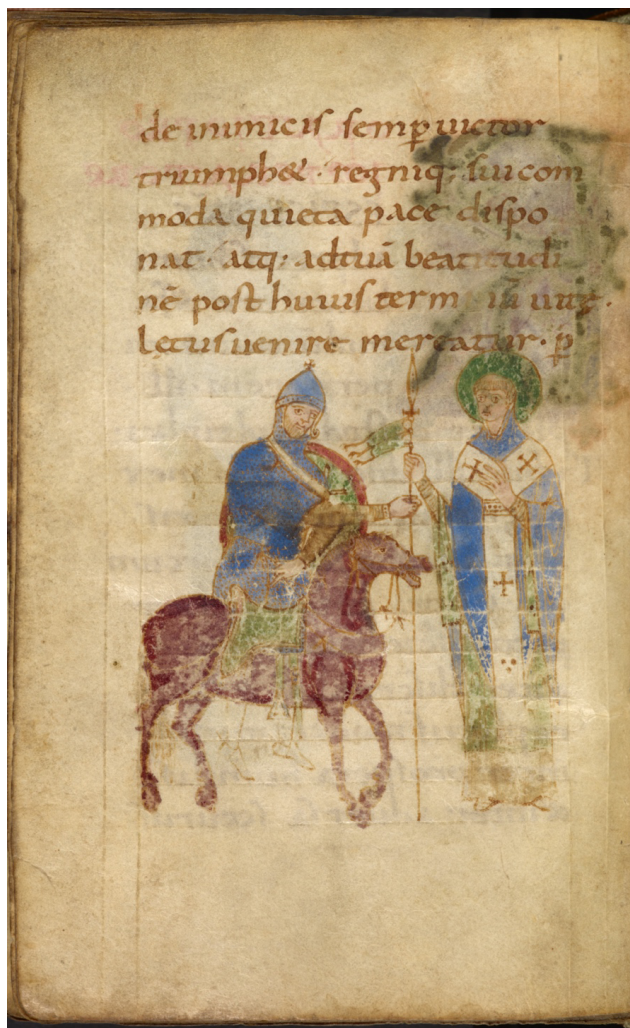 de inimicis semp uictor
triumphet · regniq; sui com
moda quieta pace dispo
nat · atq; adtuā beatitudi
nē post huius termi uitę ·
lętus uenire mereatur · p̄